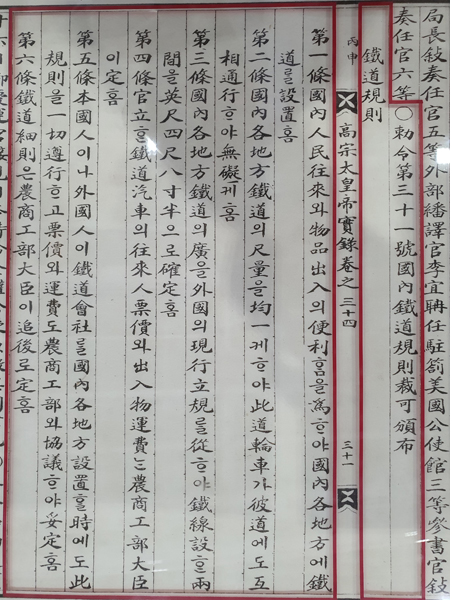 局長敍奏任官五等外部繙譯官李宜聃任駐箚美國公使館三等參書官敍
奏任官六等○勅令第三十一號國內鐵道規則裁可頒布
鐵道規則
丙申 高宗太皇帝實錄卷之三十四 三十一
第一條國內人民往來와物品出入의便利홈을爲ᄒᆞ야國內各地方에鐵
道를設置홈
第二條國內各地方鐵道의尺量을均一케ᄒᆞ야此道輪車가彼道에도互
相通行ᄒᆞ야無礙케홈
第三條國內各地方鐵道의廣을外國의現行立規를從ᄒᆞ야鐵線設ᄒᆞᆯ兩
間을英尺四尺八寸半으로確定홈
第四條官立ᄒᆞᆫ鐵道汽車의往來人票價와出入物運費ᄂᆞᆫ農商工部大臣
이定홈
第五條本國人이나外國人이鐵道會社를國內各地方設置ᄒᆞᆯ時에도此
規則을一切遵行ᄒᆞ고票價와運費도農商工部와協議ᄒᆞ야妥定홈
第六條鐵道細則은農商工部大臣이追後로定홈